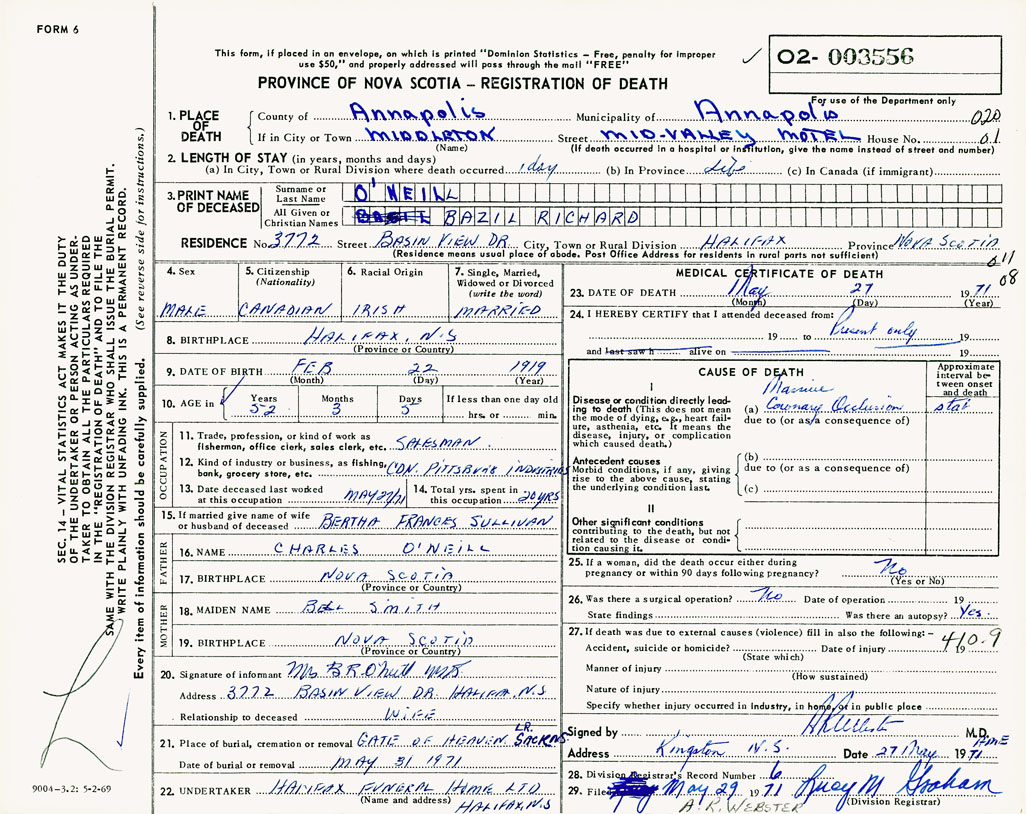 FORM 6
This form, if placed in an envelope, on which is printed "Dominion Statistics – Free, penalty for improper
use $50," and properly addressed will pass through the mail "FREE"
✓ 02- 003556
PROVINCE OF NOVA SCOTIA – REGISTRATION OF DEATH
For use of the Department only
1. PLACE OF DEATH County of Annapolis Municipality of Annapolis 020
If in City or Town MIDDLETON Street MID-VALLEY MOTEL House No. 01
(Name) (If death occurred in a hospital or institution, give the name instead of street and number)
2. LENGTH OF STAY (in years, months and days)
(a) In City, Town or Rural Division where death occurred 1 day (b) In Province Life (c) In Canada (if immigrant)
3. PRINT NAME OF DECEASED Surname or Last Name O'NEILL
All Given or Christian Names BAZIL RICHARD
RESIDENCE No. 3772 Street BASIN VIEW DR. City, Town or Rural Division HALIFAX Province NOVA SCOTIA
(Residence means usual place of abode. Post Office Address for residents in rural parts not sufficient)
011
08
4. Sex 5. Citizenship (Nationality) 6. Racial Origin 7. Single, Married, Widowed or Divorced (write the word)
MALE CANADIAN IRISH MARRIED
8. BIRTHPLACE HALIFAX, N.S
(Province or Country)
9. DATE OF BIRTH FEB 22 1919
(Month) (Day) (Year)
10. AGE in Years Months Days If less than one day old
52 3 5 hrs. or min.
OCCUPATION
11. Trade, profession, or kind of work as
fisherman, office clerk, sales clerk, etc. SALESMAN
12. Kind of industry or business, as fishing,
bank, grocery store, etc. CDN. PITTSBURG INDUSTRIES
13. Date deceased last worked at this occupation MAY 27/71 14. Total yrs. spent in this occupation 20 YRS
15. If married give name of wife
or husband of deceased BERTHA FRANCES SULLIVAN
FATHER
16. NAME CHARLES O'NEILL
17. BIRTHPLACE NOVA SCOTIA
(Province or Country)
MOTHER
18. MAIDEN NAME SMITH
19. BIRTHPLACE NOVA SCOTIA
(Province or Country)
20. Signature of informant Mrs B R O'Neill
Address 3772 BASIN VIEW DR. HALIFAX, N.S
Relationship to deceased WIFE
21. Place of burial, cremation or removal GATE OF HEAVEN LR. SACK N.S.
Date of burial or removal MAY 31 1971
22. UNDERTAKER HALIFAX FUNERAL HOME LTD
(Name and address) HALIFAX, N.S
MEDICAL CERTIFICATE OF DEATH
23. DATE OF DEATH May 27 1971
(Month) (Day) (Year)
24. I HEREBY CERTIFY that I attended deceased from:
19 to Present only 19
and last saw h alive on 19
CAUSE OF DEATH
Approximate interval between onset and death
I
Disease or condition directly leading to death (This does not mean the mode of dying, e.g., heart failure, asthenia, etc. It means the disease, injury, or complication which caused death.)
(a) Massive Coronary Occlusion stat
due to (or as a consequence of)
Antecedent causes
Morbid conditions, if any, giving rise to the above cause, stating the underlying condition last.
(b)
due to (or as a consequence of)
(c)
II
Other significant conditions
contributing to the death, but not related to the disease or condition causing it.
25. If a woman, did the death occur either during
pregnancy or within 90 days following pregnancy? No
(Yes or No)
26. Was there a surgical operation? No Date of operation 19
State findings Was there an autopsy? Yes.
27. If death was due to external causes (violence) fill in also the following:– 410.9
Accident, suicide or homicide? Date of injury 19
(State which)
Manner of injury
(How sustained)
Nature of injury
Specify whether injury occurred in industry, in home, or in public place
Signed by M.D.
AME
Address Kingston N.S. Date 27 May 1971
28. Division Registrar's Record Number 6
29. Filed May 29 1971 Lucy M Graham
A. R. WEBSTER (Division Registrar)
SEC. 14 – VITAL STATISTICS ACT MAKES IT THE DUTY
OF THE UNDERTAKER OR PERSON ACTING AS UNDER-
TAKER TO OBTAIN ALL THE PARTICULARS REQUIRED
IN THE "REGISTRATION OF DEATH" AND TO FILE THE
SAME WITH THE DIVISION REGISTRAR WHO SHALL ISSUE THE BURIAL PERMIT.
WRITE PLAINLY WITH UNFADING INK. THIS IS A PERMANENT RECORD.
Every item of information should be carefully supplied. (See reverse side for instructions.)
9004-3.2: 5-2-69